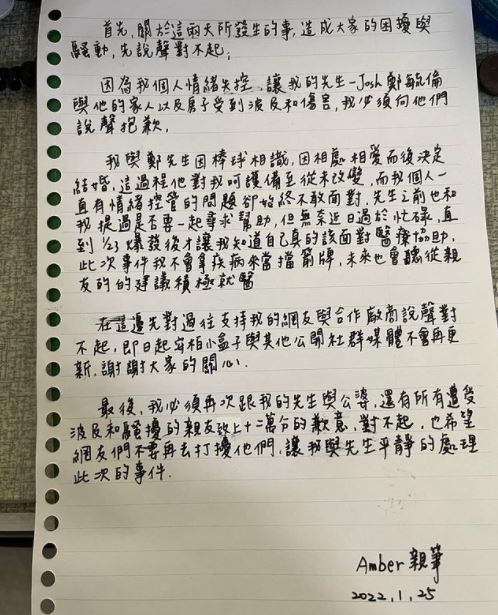 首先，關於這兩天所發生的事，造成大家的困擾與
騷動，先說聲對不起，
因為我個人情緒失控，讓我的先生-Josh 鄭毓倫
與他的家人以及房子受到波及和傷害，我必須向他們
說聲抱歉，
我與鄭先生因棒球相識，因相處相愛而後決定
結婚，這過程他對我呵護備至從未改變，而我個人一
直有情緒控管的問題卻始終不敢面對，先生之前也和
我提過是否要一起尋求幫助，但無奈近日過於忙碌，直
到 1/23 爆發後才讓我知道自己真的該面對醫療協助，
此次事件我不會拿疾病來當擋箭牌，未來也會聽從親
友的的建議積極就醫
在這邊先對過往支持我的網友與合作廠商說聲對
不起，即日起安柏小盒子與其他公開社群媒體不會再更
新，謝謝大家的關心．
最後，我必須再次跟我的先生與公婆，還有所有遭受
波及和騷擾的親友致上十二萬分的歉意，對不起，也希望
網友們不要再去打擾他們，讓我與先生平靜的處理
此次的事件．
Amber 親筆
2022.1.25